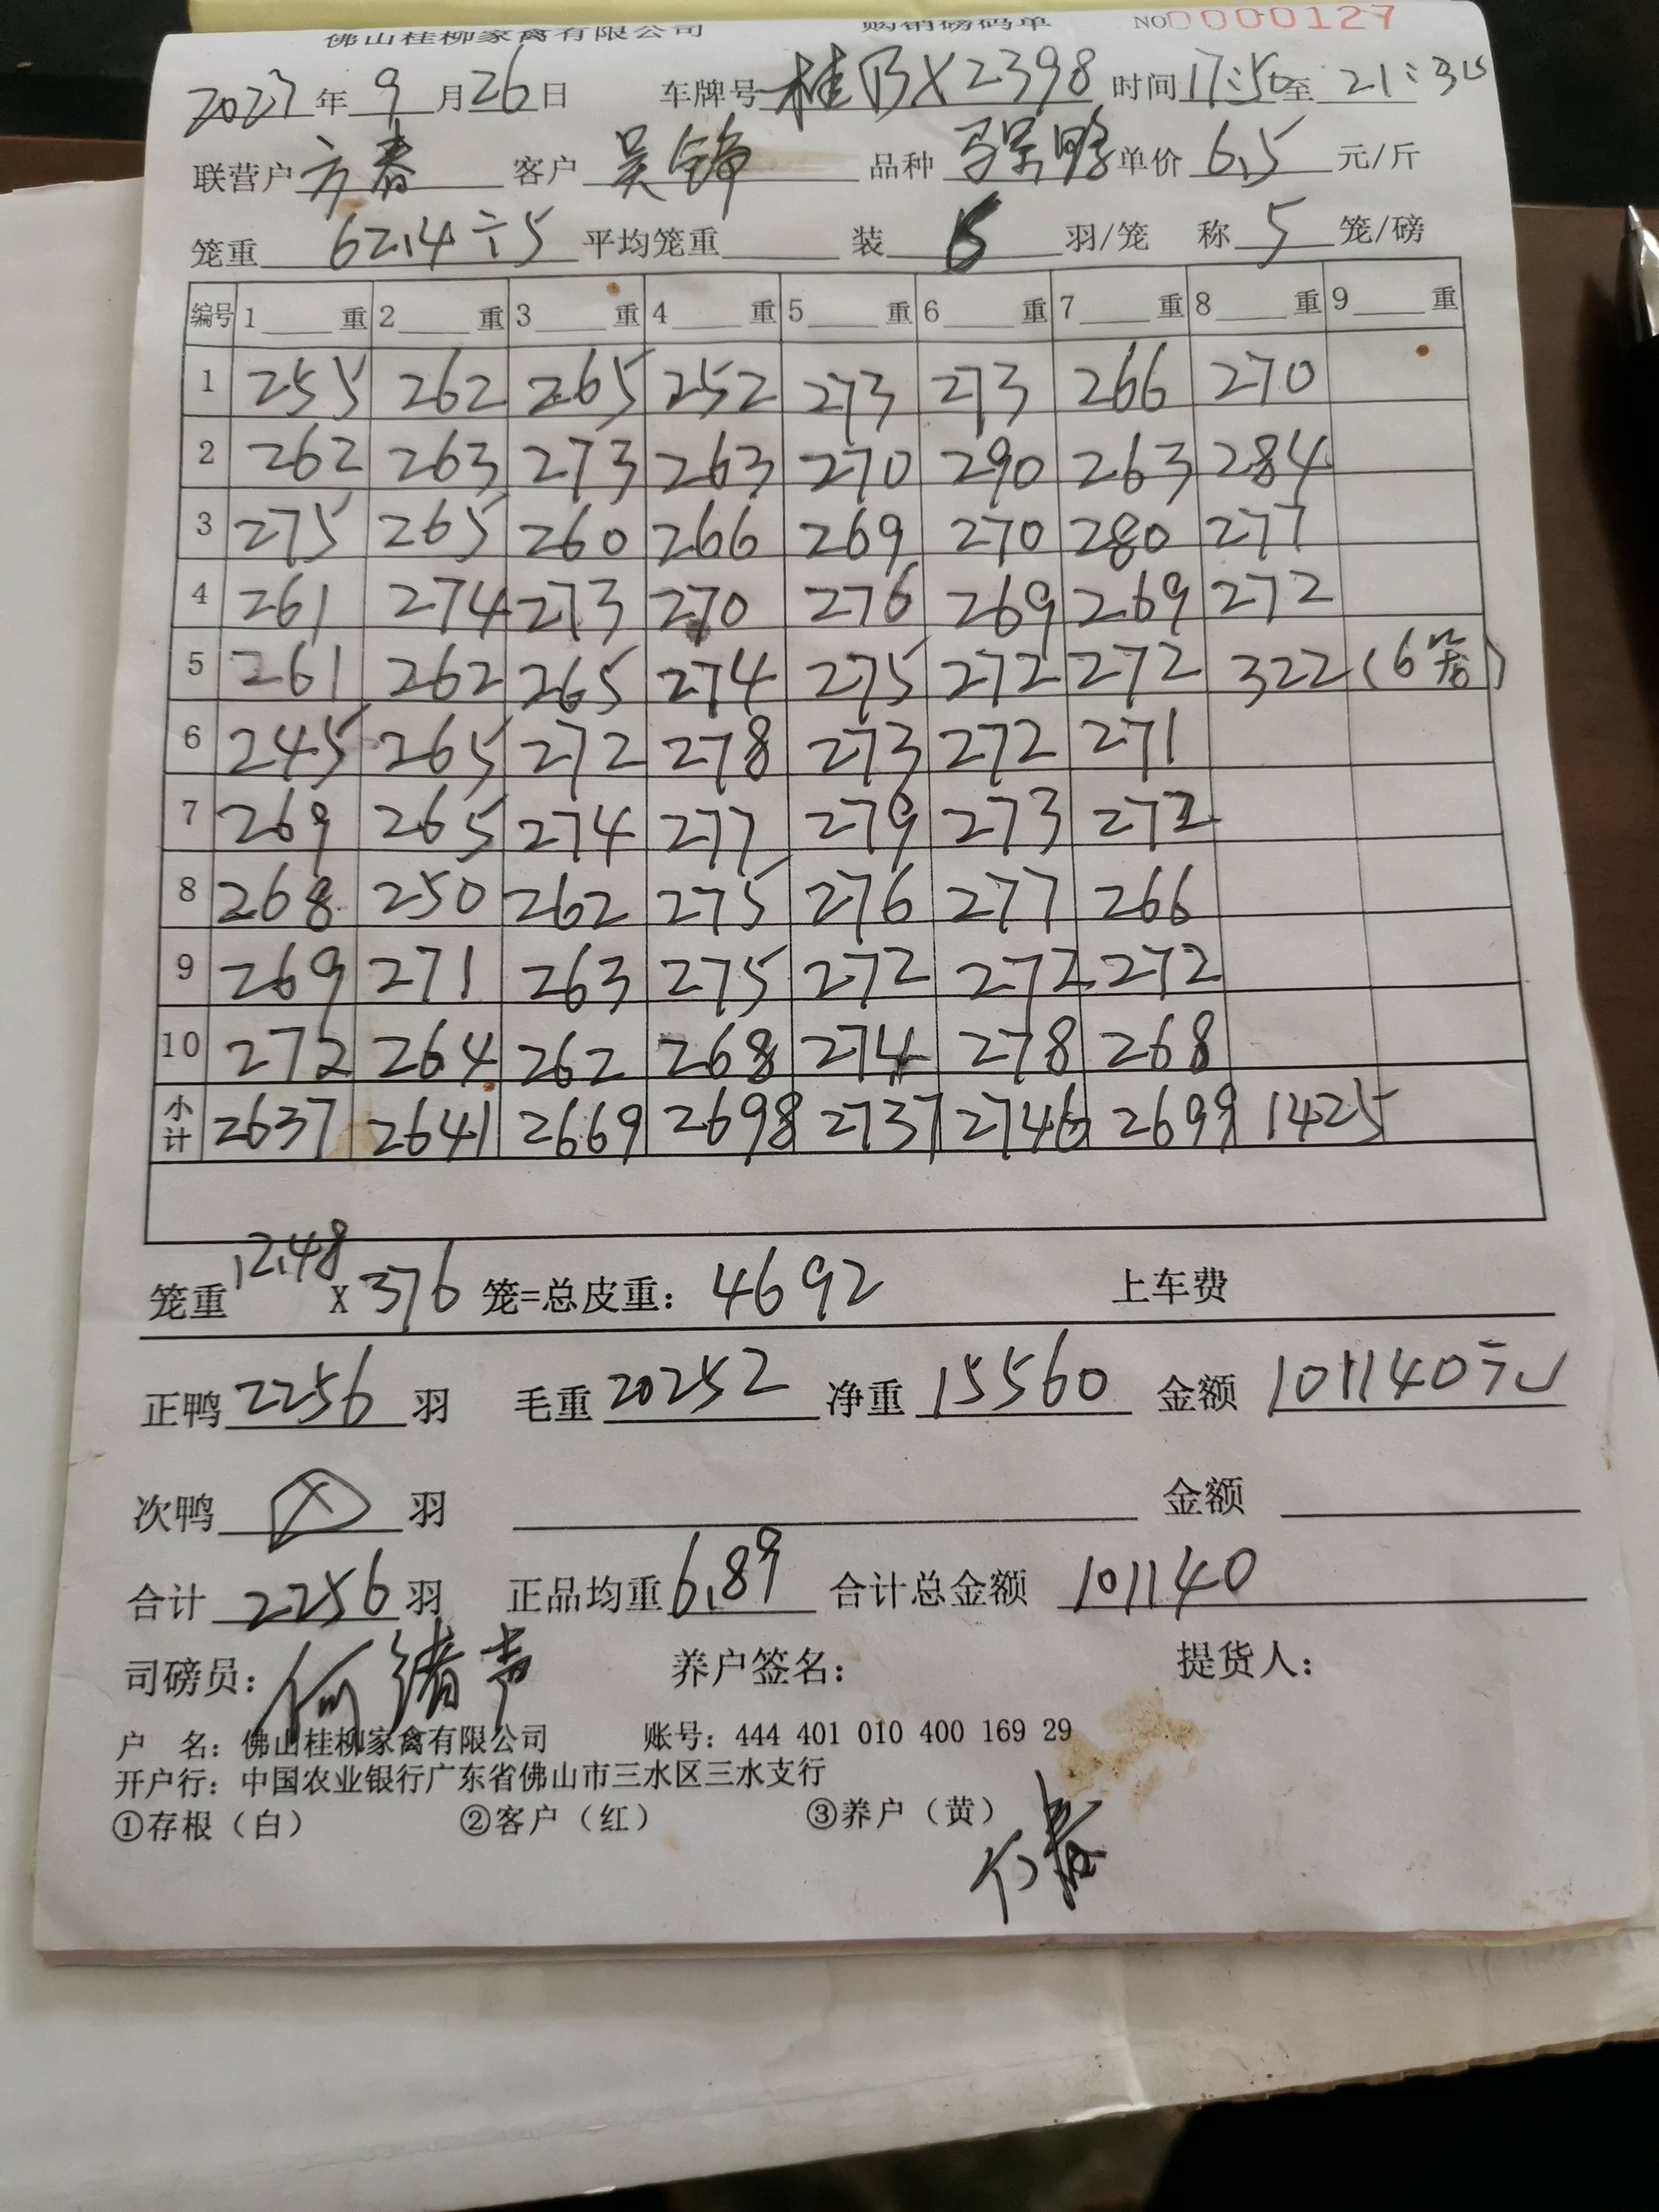 佛山桂柳家禽有限公司 购销磅码单 NO0000127
2023年9月26日 车牌号 桂BX2398 时间17:50至21:35
联营户 方春 客户 吴铮 品种 马呆鸭 单价6.5元/斤
笼重 62.4÷5 平均笼重 装 6 羽/笼 称 5 笼/磅
编号 1 重 2 重 3 重 4 重 5 重 6 重 7 重 8 重 9 重
1 255 262 265 252 273 273 266 270
2 262 263 273 263 270 290 263 284
3 275 265 260 266 269 270 280 277
4 261 274 273 270 276 269 269 272
5 261 262 265 274 275 272 272 322(6笼)
6 245 265 272 278 273 272 271
7 269 265 274 277 279 273 272
8 268 250 262 275 276 277 266
9 269 271 263 275 272 272 272
10 272 264 262 268 274 278 268
小计 2637 2641 2669 2698 2737 2746 2699 1425
笼重12.48 X 376 笼=总皮重: 4692 上车费
正鸭 2256 羽 毛重 20252 净重 15560 金额 101140元
次鸭 羽 金额
合计 2256 羽 正品均重 6.89 合计总金额 101140
司磅员: 何绪声 养户签名: 提货人:
户 名: 佛山桂柳家禽有限公司 账号: 444 401 010 400 169 29
开户行: 中国农业银行广东省佛山市三水区三水支行
①存根(白) ②客户(红) ③养户(黄)
方春